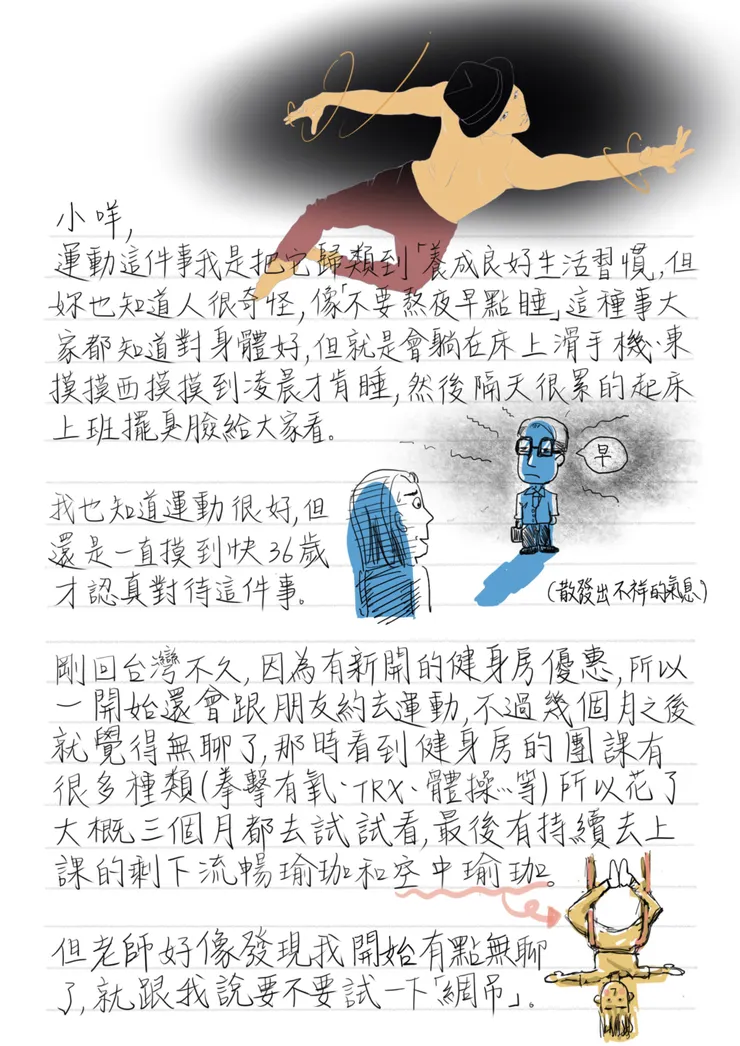 小咩,
運動這件事我是把它歸類到「養成良好生活習慣,但
妳也知道人很奇怪,像「不要熬夜早點睡」這種事大
家都知道對身體好,但就是會躺在床上滑手機、東
摸摸西摸摸到凌晨才肯睡,然後隔天很累的起床
上班擺臭臉給大家看。
早
我也知道運動很好,但
還是一直摸到快36歲
才認真對待這件事。
(散發出不祥的氣息)
剛回台灣不久,因為有新開的健身房優惠,所以
一開始還會跟朋友約去運動,不過幾個月之後
就覺得無聊了,那時看到健身房的團課有
很多種類(拳擊有氧、TRX、體操…等)所以花了
大概三個月都去試試看,最後有持續去上
課的剩下流暢瑜珈和空中瑜珈。
但老師好像發現我開始有點無聊
了,就跟我說要不要試一下「綢吊」。